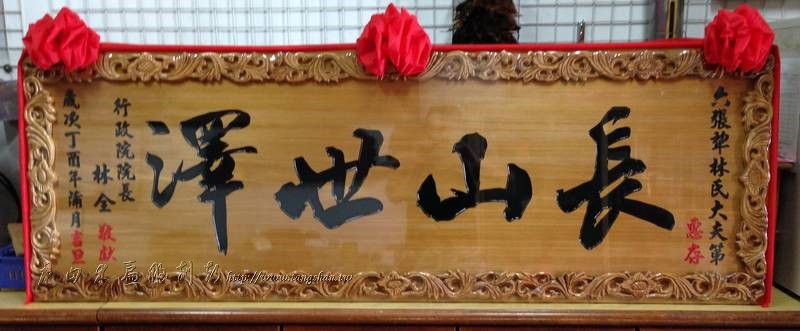 六張犂林氏大夫第
惠存
長山世澤
行政院院長
林全 敬獻
歲次丁酉年蒲月吉旦
http://www.tangshan.tw